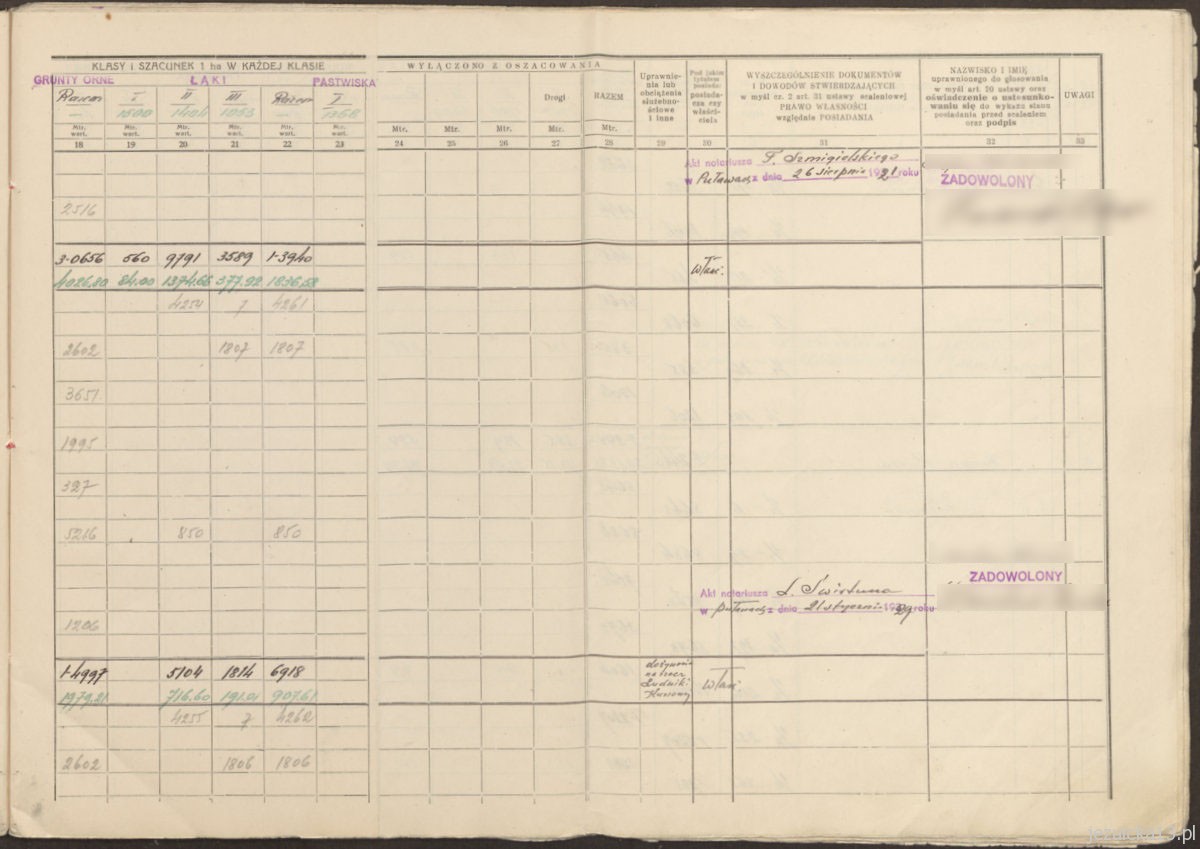 KLASY i SZACUNEK 1 ha W KAŻDEJ KLASIE
GRUNTY ORNE ŁĄKI PASTWISKA
Razem I II III Razem I
— 1500 1404 1053 — 1356
Mtr. wart. Mtr. wart. Mtr. wart. Mtr. wart. Mtr. wart. Mtr. wart.
18 19 20 21 22 23
WYŁĄCZONO Z OSZACOWANIA
Drogi RAZEM
Mtr. Mtr. Mtr. Mtr. Mtr.
24 25 26 27 28
Uprawnie-
nia lub
obciążenia
służebno-
ściowe
i inne
29
Pod jakim
tytułem
posiada:
posiada-
cza czy
właści-
ciela
30
WYSZCZEGÓLNIENIE DOKUMENTÓW
I DOWODÓW STWIERDZAJĄCYCH
w myśl cz. 2 art. 31 ustawy scaleniowej
PRAWO WŁASNOŚCI
względnie POSIADANIA
31
NAZWISKO I IMIĘ
uprawnionego do głosowania
w myśl art. 20 ustawy oraz
oświadczenie o ustosunko-
waniu się do wykazu stanu
posiadania przed scaleniem
oraz podpis
32
UWAGI
33
Akt notariusza F. Szmigielskiego
w Puławach z dnia 26 sierpnia 1921 roku
ZADOWOLONY
2516
3·0656 560 9791 3589 1·3940
4026.80 84.00 1374.66 377.92 1836.58
właść.
4254 7 4261
2602 1807 1807
3651
1995
327
5216 850 850
ZADOWOLONY
Akt notariusza L. Świstuna
w Puławach z dnia 21 stycznia 1929 roku
1206
1·4997 5104 1814 6918
1979.21 716.60 191.01 907.61
na rzecz
właść
4255 7 4262
2602 1806 1806